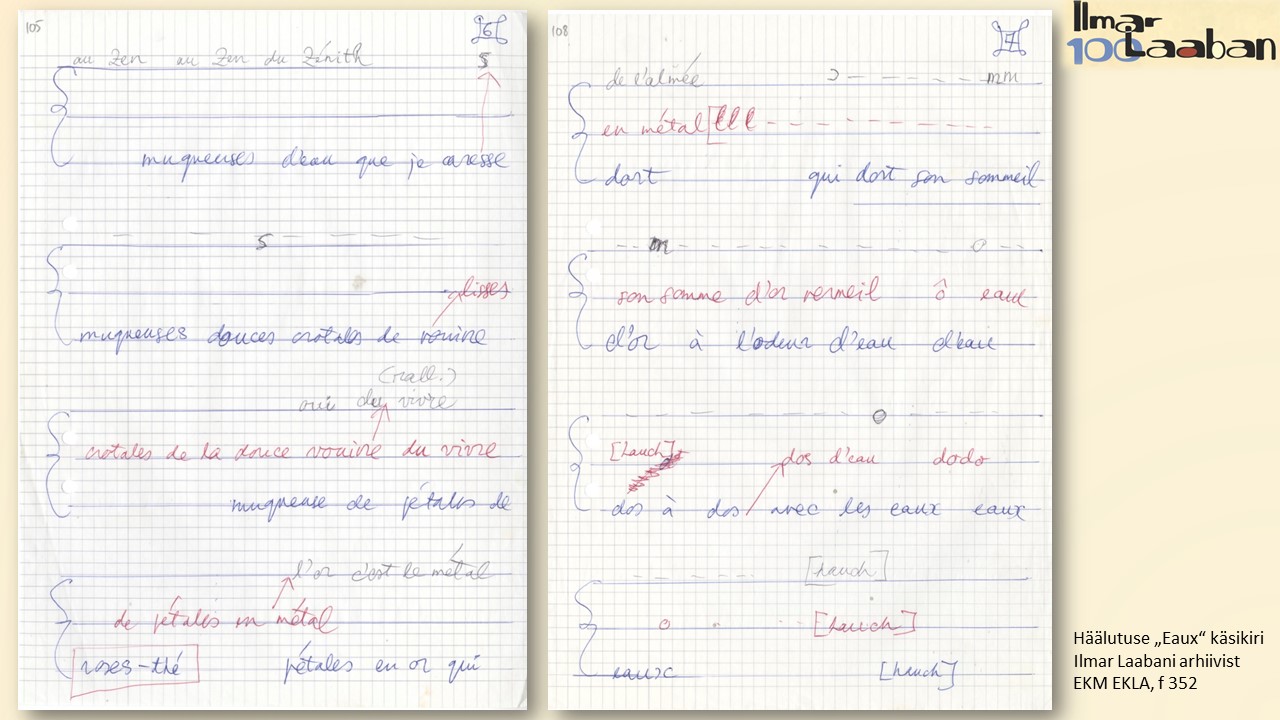 105
6
au Zen au Zen du Zénith s
muqueuses d'eau que je caresse
— — s — — —
lisses
muqueuses douces crotales de vouivre
(rall.)
oui du vivre
crotales de la douce vouivre du vivre
muqueuse de pétales de
l'or c'est le métal
de pétales en métal
roses-thé pétales en or qui
108
7
de l'almée — — — — — mm
en métal [lll - - - - - - - - - -
dort qui dort son sommeil
- - m - - - - - - - - - o - -
son somme d'or vermeil ô eau
d'or à l'odeur d'eau d'eau
— — — — — o — — —
[hauch] dos d'eau dodo
dos à dos avec les eaux eaux
- - - - - - [hauch]
o [hauch]
eaux [hauch]
Ilmar
100 Laaban
Häälutuse „Eaux“ käsikiri
Ilmar Laabani arhiivist
EKM EKLA, f 352